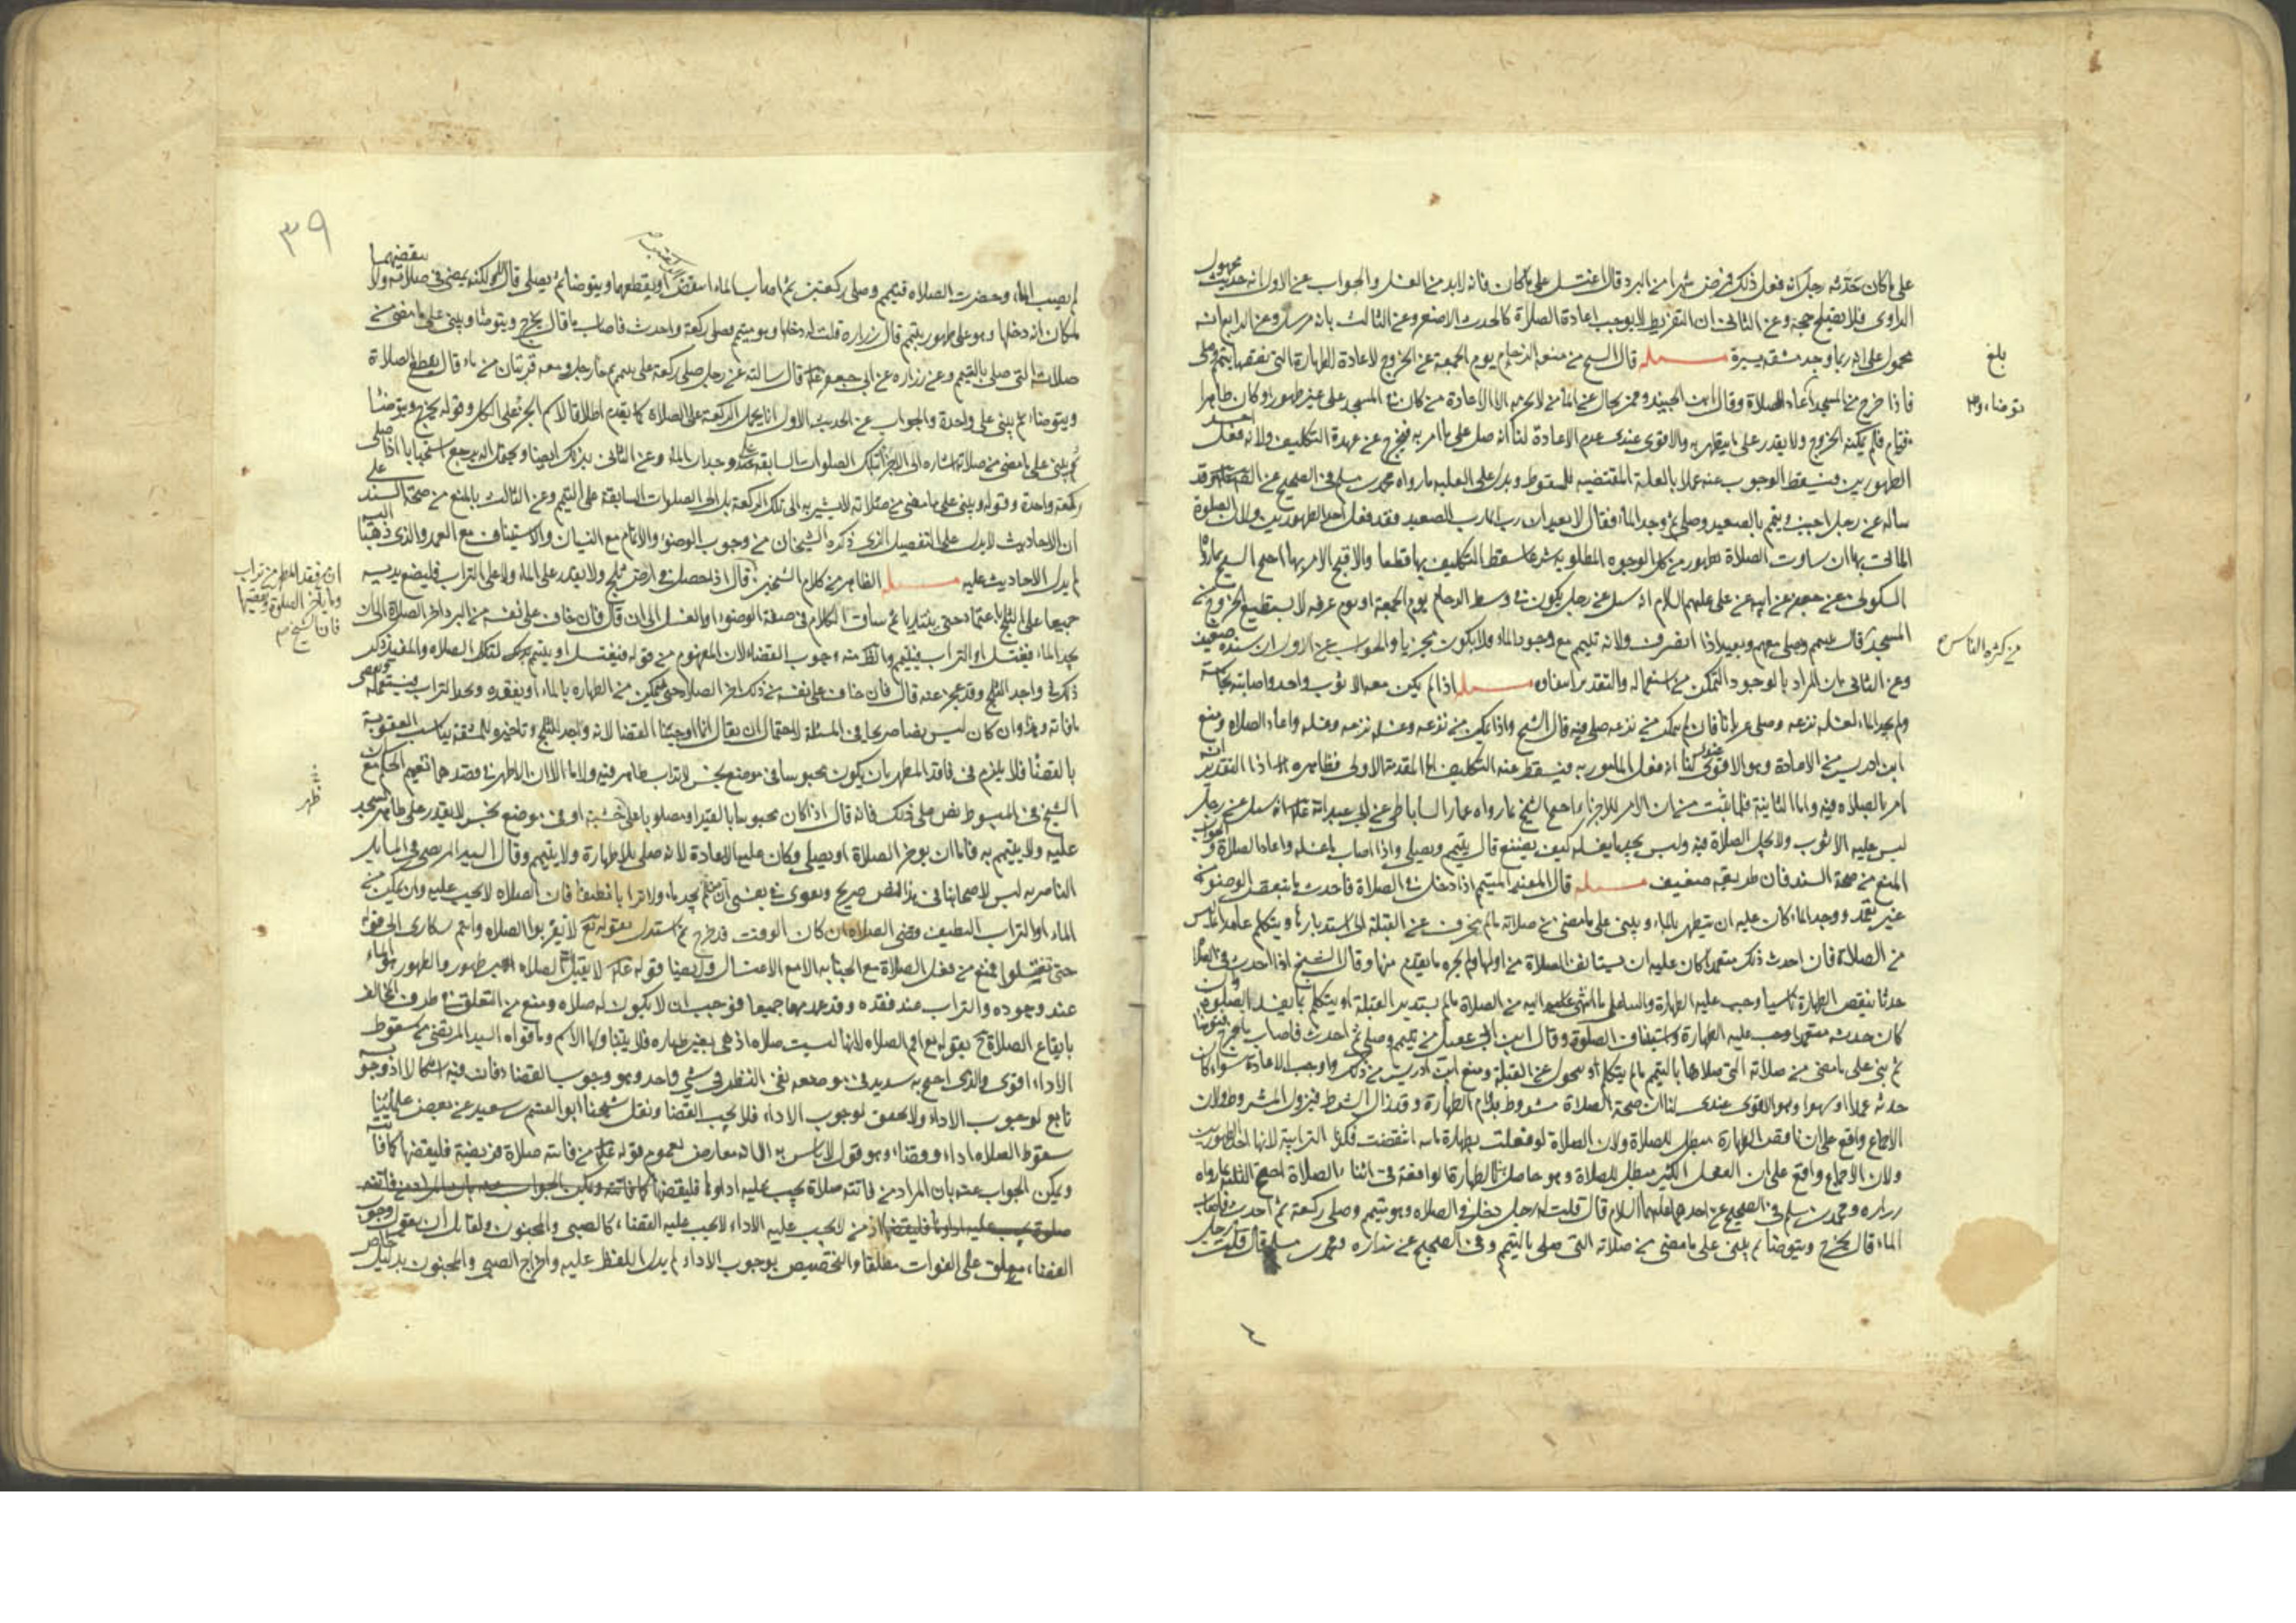 على ما كان حدثه رجل انه فعل ذلك فمرض شهرا من البرد قال اغتسل على ما كان فانه لابد من الغسل والجواب عن الاول انه حديث مجهول
الراوى فلا يصلح حجة وعن الثانى ان التفريط لا يوجب اعادة الصلاة كالمحدث الاصغر وعن الثالث بانه مرسل وعن الرابع انه
محمول على انه ربما وجد مشقة يسيرة مسئله قال الشيخ من منعه الزحام يوم الجمعة عن الخروج لاعادة الطهارة التى نقضها يتيمم وصلى
فاذا خرج من المسجد اعاد الصلاة وقال ابن الجنيد ومن بحال عن الماء من لا يحرمه الا الاعادة من كان فى المسجد على غير طهور او كان طاهرا
فنام فلم يمكنه الخروج ولا يقدر على ما يتطهر به والاقوى عندى عدم الاعادة لنا انه صلى على ما امر به فيخرج عن عهدة التكليف ولانه فعل احد
الطهورين فيسقط الوجوب عنه عملا بالعلية المقتضيه للسقوط ويدل على العلية ما رواه محمد بن مسلم فى الصحيح عن الصادق وقد
ساله عن رجل اجنب وتيمم بالصعيد وصلى ثم وجد الماء فقال لا يعيد ان رب الماء رب الصعيد فقد فعل احد الطهورين ولان الصلوة
الماتى بها ان ساوت الصلاة بطهور من كل الوجوه المطلوبة شرعا سقط التكليف بها قطعا والا قبح الامر بها احتج الشيخ بما رواه
السكونى عن جعفر عن ابيه عن على عليهم السلام انه سئل عن رجل يكون فى وسط الزحام يوم الجمعة او يوم عرفه لا يستطيع الخروج من
المسجد قال يتيمم وصلى معهم ويعيد اذا انصرف ولانه تيمم مع وجود الماء فلا يكون مجزيا والجواب عن الاول ان سنده ضعيف
وعن الثانى بان المراد بالوجود التمكن من استعماله والتقدير انتفاؤه مسئله اذا لم يكن معه الا ثوب واحد واصابته نجاسة
ولم يجد الماء لغسله نزعه وصلى عريانا فان لم يتمكن من نزعه صلى فيه قال الشيخ واذا تمكن من نزعه وغسله نزعه وغسله واعاد الصلاة ومنع
ابن ادريس من الاعادة وهو الاقوى عندى لنا انه فعل المامور به فيسقط عنه التكليف اما المقدمة الاولى فظاهرة اذ التقدير انه
امر بالصلاة فيه واما الثانية فلما ثبت من ان الامر للاجزاء احتج الشيخ بما رواه عمار الساباطى عن ابى عبدالله انه سئل عن رجل
ليس عليه الا ثوب ولا تحل الصلاة فيه وليس يجد ما يغسله كيف يصنع قال يتيمم ويصلى واذا اصاب ماء غسله واعاد الصلاة والجواب
المنع من صحة السند فان طريقه ضعيف مسئله قال المفيد المتيمم اذا دخل فى الصلاة فاحدث ما ينقض الوضوء من
غير تعمد ووجد الماء كان عليه ان يتطهر بالماء ويبنى على ما مضى من صلاته ما لم ينحرف عن القبلة الى استدبارها ويتكلم عامدا بما ليس
من الصلاة فان احدث ذلك متعمدا كان عليه ان يستانف الصلاة من اولها ولم يجزه ما تقدم منها وقال الشيخ اذا احدث فى الصلاة
حدثا ينقض الطهارة ناسيا وجب عليه الطهارة والبناء على ما انتهى اليه من الصلاة ما لم يستدبر القبلة او يتكلم بما يفسد الصلوة وان
كان حدثه متعمدا وجب عليه الطهارة واستيناف الصلوة وقال ابن ابى عقيل من تيمم وصلى ثم احدث فاصاب ماء خرج فتوضا
ثم بنى على ما مضى من صلاته التى صلاها بالتيمم ما لم يتكلم او يتحول عن القبلة ومنع ابن ادريس من ذلك واوجب الاعادة سواء كان
حدثه عمدا او سهوا وهو الاقوى عندى لنا ان صحة الصلاة مشروط بدوام الطهارة وقد زال الشرط فيزول المشروط ولان
الاجماع واقع على ان ناقض الطهارة مبطل للصلاة ولان الصلاة لو فعلت بطهارة مائية انتقضت فكذا الترابية لانها احد الطهورين
ولان الاجماع واقع على ان الفعل الكثير مبطل للصلاة وهو حاصل بالطهارة الواقعة فى اثناء الصلاة احتج الثلثة بما رواه
زراره ومحمد بن مسلم فى الصحيح عن احدهما عليهما السلام قال قلت له رجل دخل فى الصلاة وهو متيمم وصلى ركعة ثم احدث فاصاب
الماء قال يخرج ويتوضا ثم يبنى على ما مضى من صلاته التى صلى بالتيمم وفى الصحيح عن زراره ومحمد بن مسلم قال قلت رجل
بلغ
توضاء وصح
من كثرة الناس صح
٣٩
لم يصب الماء وحضرت الصلاة فتيمم وصلى ركعتين ثم اصاب الماء اينقض الركعتين او يقطعهما ويتوضا ثم يصلى قال لا ولكنه يمضى فى صلاته ولا ينقضهما
لمكان انه دخلها وهو على طهور بتيمم قال زراره قلت له دخلها وهو متيمم فصلى ركعة واحدث فاصاب ماء قال يخرج ويتوضا ويبنى على ما مضى من
صلاته التى صلى بالتيمم وعن زراره عن ابى جعفر قال سالته عن رجل صلى ركعة على تيمم ثم جاء رجل ومعه قربتان من ماء قال يقطع الصلاة
ويتوضاء ثم يبنى على واحدة والجواب عن الحديث الاول انا نحمل الركعة على الصلاة كما تقدم اطلاقا لاسم الجزء على الكل وقوله يخرج ويتوضا
ثم يبنى على ما مضى من صلاته اشارة الى الاجتزاء بتلك الصلوات السابقة على وجدان الماء وعن الثانى بذلك ايضا ويحتمل انه يرجع استحبابا اذا صلى
ركعة واحدة وقوله ويبنى على ما مضى من صلاته لا يشير به الى تلك الركعة بل الى الصلوات السابقة على التيمم وعن الثالث بالمنع من صحة السند على
ان الاحاديث لا تدل على التفصيل الذى ذكره الشيخان من وجوب الوضوء والاتمام مع النسيان والاستيناف مع العمد والذى ذهبا اليه
لم يدل الاحاديث عليه مسئله الظاهر من كلام الشيخين قال اذا حصل فى ارض ثلج ولا يقدر على الماء ولا على التراب فليضع يديه
جميعا على الثلج باعتماد حتى يتنديا ثم ساق الكلام فى صفة الوضوء او الغسل الى ان قال فان خاف على نفسه من البرد اخر الصلاة الى ان
يجد الماء فيغتسل او التراب فيتيمم
ذكره فى واجد الثلج وقد عجز عنه قال فان خاف على نفسه من ذلك اخر الصلاة حتى يتمكن من الطهارة بالماء او يفقده ويجد التراب فيستعمله ويقضى
ما فاته وهذا وان كان ليس نصا صريحا فى المسئلة لاحتمال ان يقال انما اوجبنا القضا لانه واجد للثلج وتاخيره للمشقة يناسب العقوبة
بالقضاء فلا يلزم فى فاقد المطهر بان يكون محبوسا فى موضع نجس لا تراب طاهر فيه ولا ماء الا ان الاظهر من قصدهما تعميم الحكم مع ان
الشيخ فى المبسوط نص على ذلك فانه قال اذا كان محبوسا بالقيد او مصلوبا على خشبة او فى موضع نجس لا يقدر على طاهر يسجد
عليه ولا يتيمم به فاما ان يوخر الصلاة او يصلى وكان عليه الاعادة لانه صلى بلا طهارة ولا تيمم وقال السيد المرتضى فى المسائل
الناصرية ليس لاصحابنا فى هذا نص صريح ويقوى فى نفسى انه متى لم يجد ماء ولا ترابا نظيفا فان الصلاة لا تجب عليه وان تمكن من
الماء او التراب النظيف قضى الصلاة وان كان الوقت قد خرج ثم استدل بقوله تعالى لا تقربوا الصلاه وانتم سكارى الى قوله
حتى تغتسلوا فمنع من فعل الصلاة مع الجنابة الا مع الاغتسال وايضا قوله لا يقبل الله الصلاه بغير طهور والطهور هو الماء
عند وجوده والتراب عند فقده وقد عدمهما جميعا فوجب ان لا يكون له صلاه ومنع من التعلق من طرف المخالف
بايقاع الصلاة بقوله تع اقم الصلاه لانها ليست صلاه اذ هى بغير طهارة فلا يتناولها الاسم وما قواه السيد المرتضى من سقوط
الاداء اقوى والذى احتج به سديد فى موضعه بقى النظر فى شىء واحد وهو وجوب القضاء فان فيه اشكالا اذ وجوبه
تابع لوجوب الاداء ولا تحقق لوجوب الاداء فلا يجب القضا ونقل شيخنا ابو القسم بن سعيد عن بعض علمائنا
سقوط الصلاه اداء وقضاء وهو قول لا باس به الا انه معارض بعموم قوله من فاتته صلاة فريضة فليقضها كما فاتته
ويمكن الجواب عنه بان المراد من فاتته صلاة يجب عليه اداؤها فليقضها كما فاتته
اذ من لا يجب عليه الاداء لا يجب عليه القضاء كالصبى والمجنون ولقائل ان يقول وجوب
القضاء معلق على الفوات مطلقا والتخصيص بوجوب الاداء لم يدل اللفظ عليه واخراج الصبى والمجنون بدليل خاص
ان فقد المطهر من تراب
وماء يؤخر الصلوة ويقضيها
فان الشيخ صح